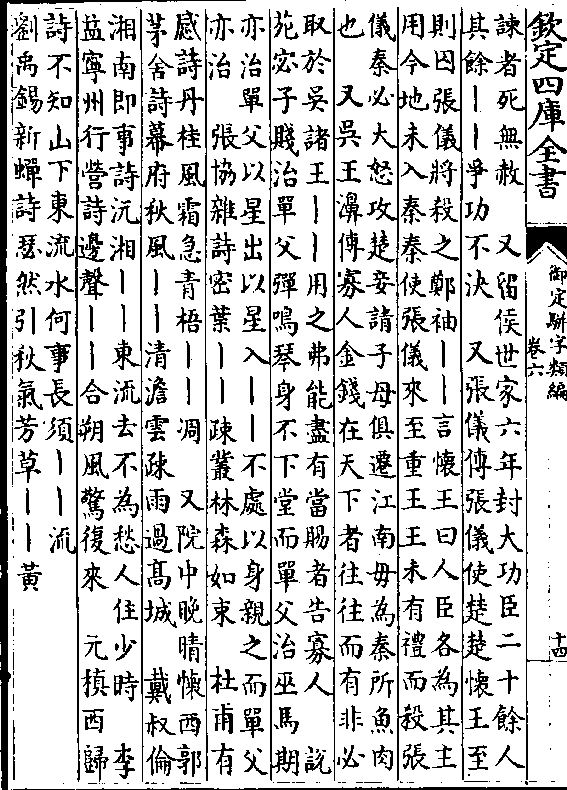 欽定四庫全書
御定駢字類編
卷六
十四
諫者死無赦　又留侯世家六年封大功臣二十餘人
其餘丨丨爭功不決　又張儀傳張儀使楚楚懷王至
則囚張儀將殺之鄭袖丨丨言懷王曰人臣各為其主
用今地未入秦秦使張儀來至重王王未有禮而殺張
儀秦必大怒攻楚妾請子母俱遷江南毋為秦所魚肉
也　又吳王濞傳寡人金錢在天下者往往而有非必
取於吳諸王丨丨用之弗能盡有當賜者告寡人　說
苑宓子賤治單父彈鳴琴身不下堂而單父治巫馬期
亦治單父以星出以星入丨丨不處以身親之而單父
亦治　張協雜詩密葉丨丨疎叢林森如束　杜甫有
感詩丹桂風霜急青梧丨丨凋　又院中晚晴懷西郭
茅舍詩幕府秋風丨丨清澹雲疎雨過髙城　戴叔倫
湘南即事詩沅湘丨丨東流去不為愁人住少時　李
益寧州行營詩邊聲丨丨合朔風驚復來　元稹西歸
詩不知山下東流水何事長須丨丨流
劉禹錫新蟬詩瑟然引秋氣芳草丨丨黃